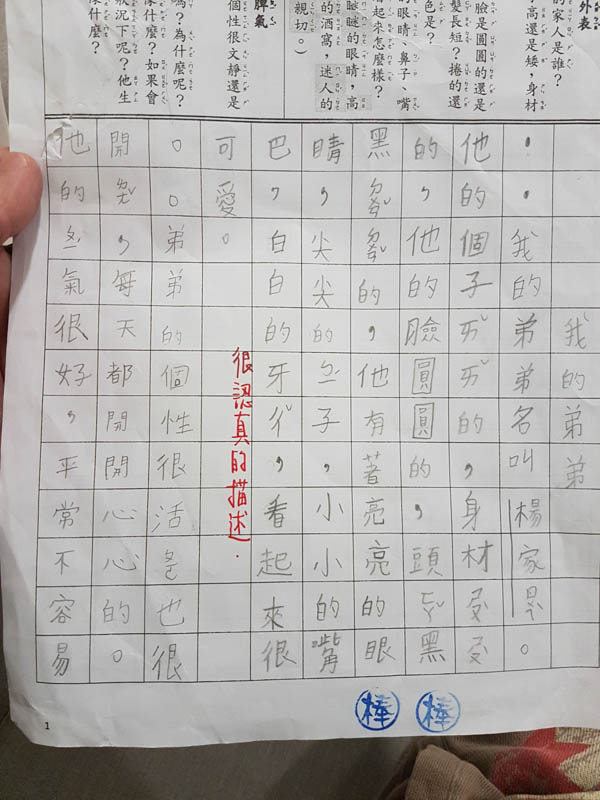 外表
的家人是誰？
高還是矮，身材
臉是圓圓的還是
髮長短？捲的還
色是？
的眼睛、鼻子、嘴
起來怎麼樣？
瞇瞇的眼睛，高
的酒窩，迷人的
親切。
脾氣
個性很文靜還是
嗎？為什麼呢？
什麼？如果會
狀況下呢？他生
樣什麼？
我的弟弟
。。我的弟弟名叫楊家。
他的個子ㄞˇㄞˇ的，身材
的，他的臉圓圓的，頭ㄈㄚˇ黑
黑的，他有著亮亮的眼
睛，尖尖的子，小小的嘴
巴，白白的牙ㄔˇ，看起來很
可愛。
很認真的描述.
。。弟弟的個性很活也很
開，每天都開開心心的。
他的氣很好，平常不容易
棒
棒
1